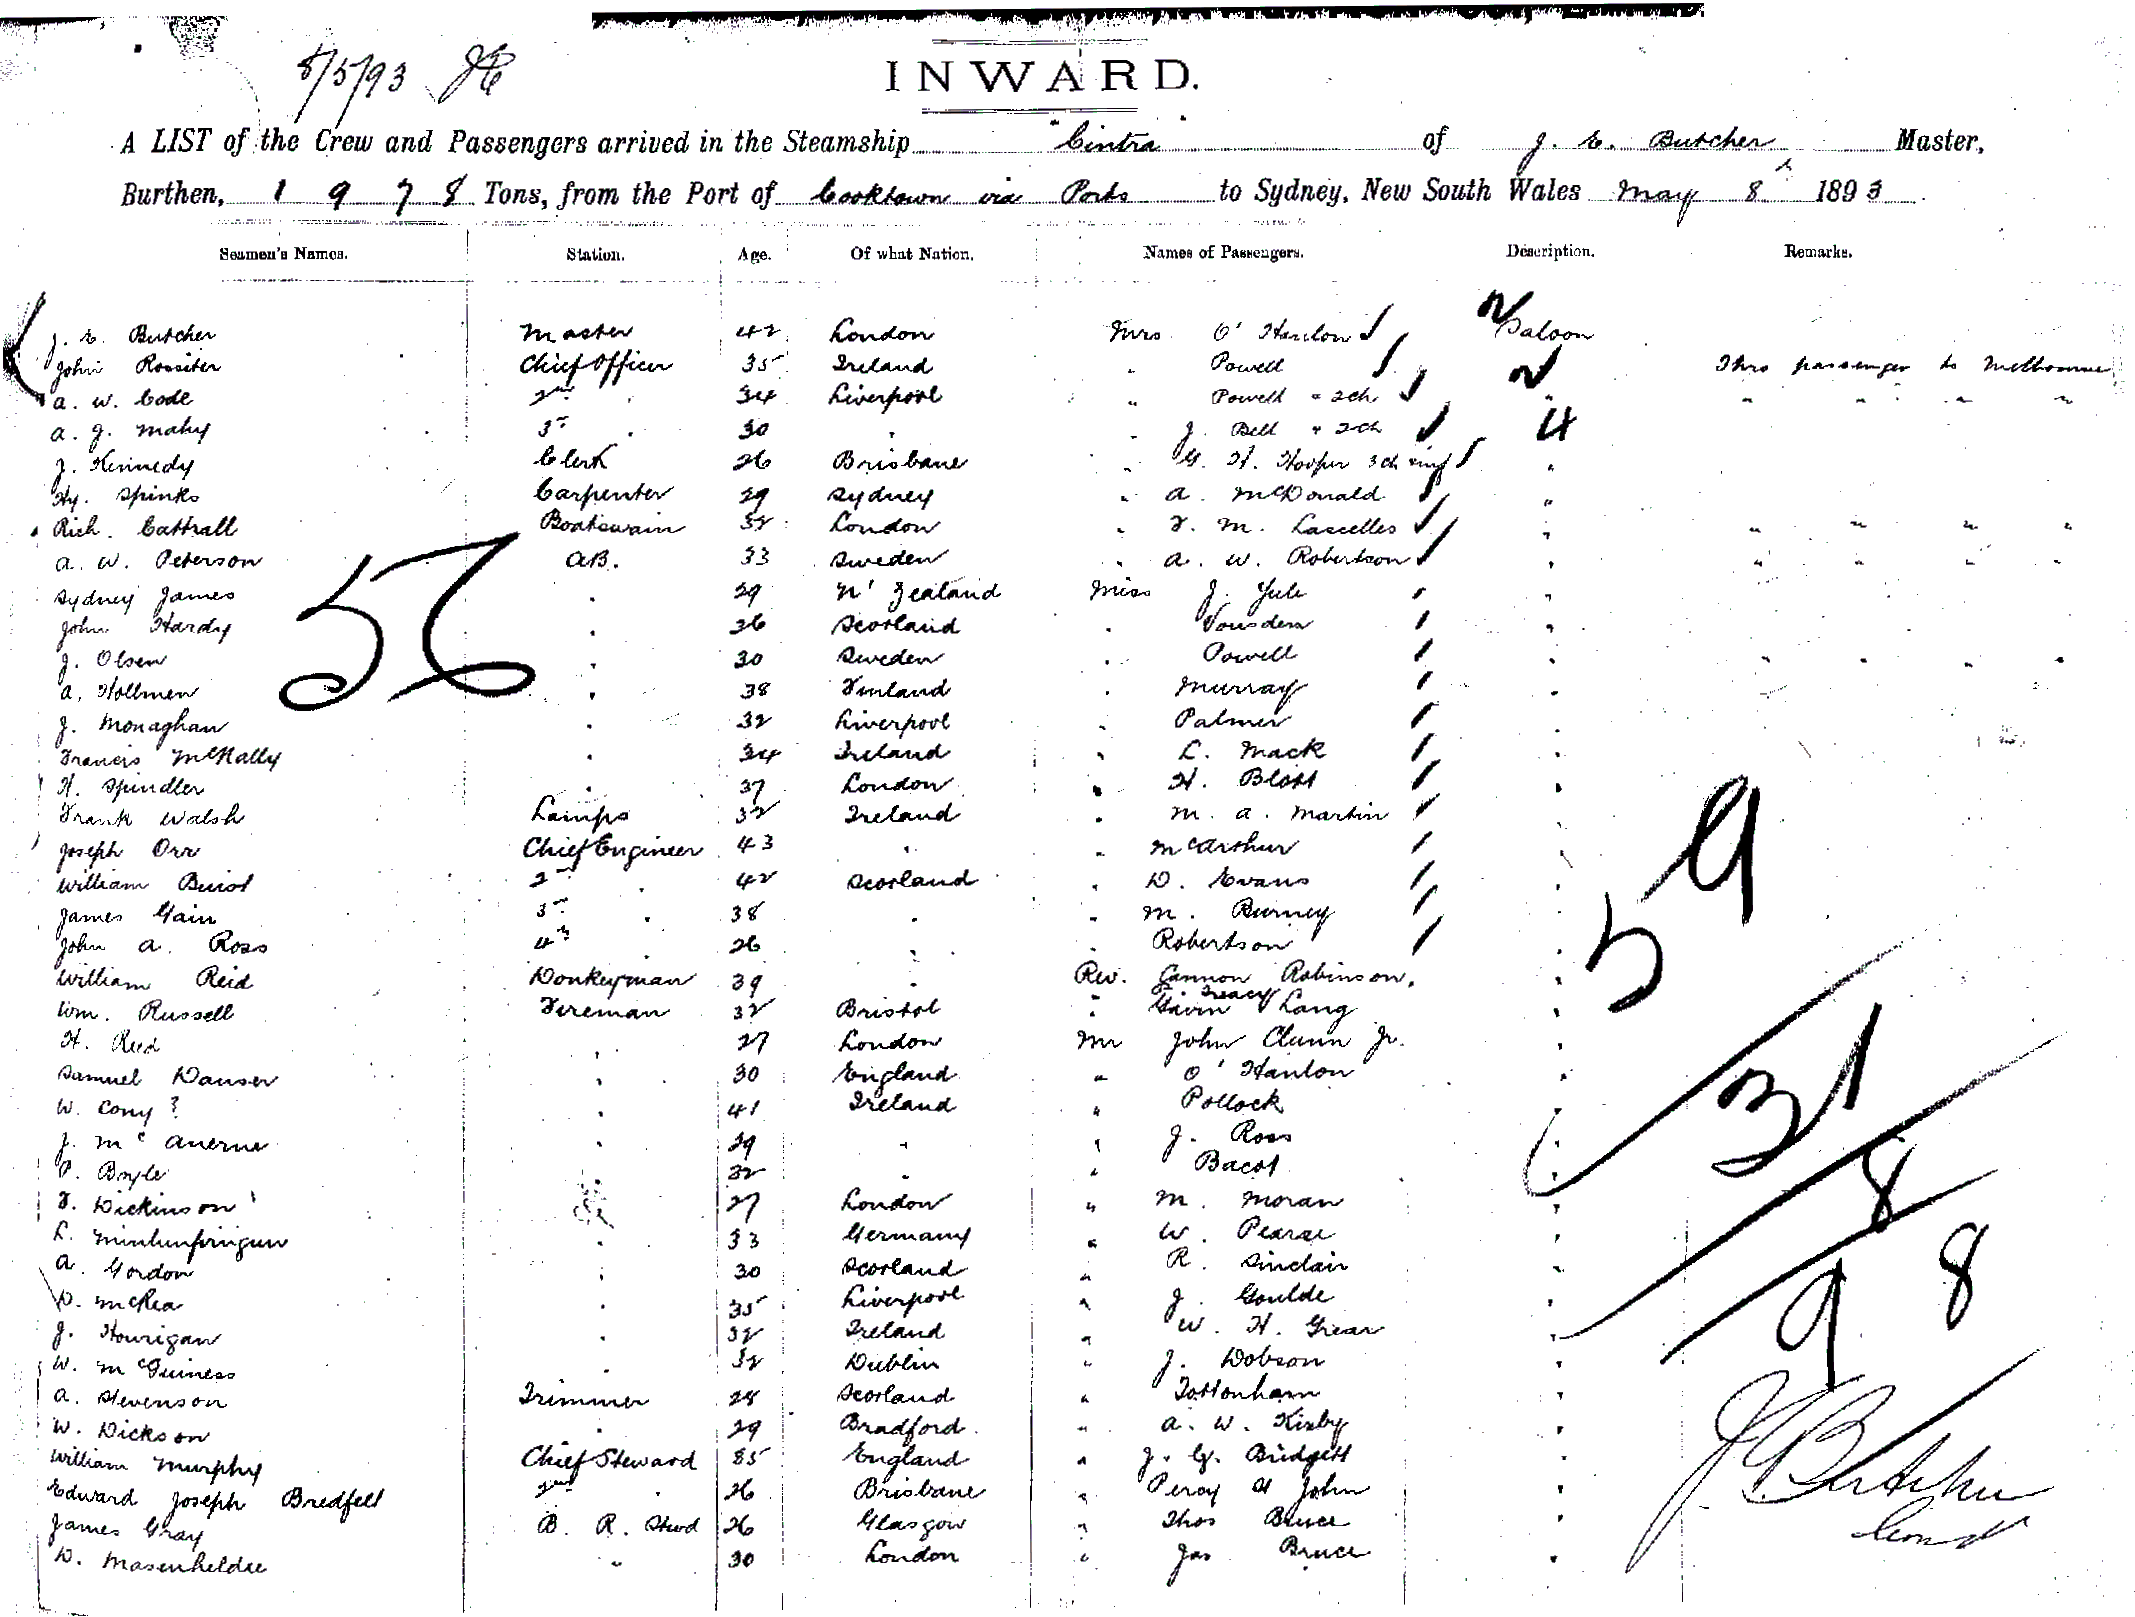 8/5/93
INWARD.
A LIST of the Crew and Passengers arrived in the Steamship "Cintra" of J. E. Butcher Master,
Burthen, 1978 Tons, from the Port of Cooktown via Ports to Sydney, New South Wales May 8th 1893
Seamen's Names. Station. Age. Of what Nation. Names of Passengers. Description. Remarks.
J. E. Butcher Master 42 London Mrs O'Hanlon Saloon
John Rossiter Chief Officer 35 Ireland " Powell Thro passenger to Melbourne
A. W. Code 2nd " 34 Liverpool " Powell & 2 ch " " " " "
A. J. Mahy 3rd " 30 " " J. Bell & 2 ch 4
J. Kennedy Clerk 26 Brisbane " G. H. Hooper 3 ch & inf "
Hy. Spinks Carpenter 29 Sydney " A. McDonald "
Rich. Cattrall Boatswain 32 London " F. M. Lascelles " " " " "
A. W. Peterson AB. 33 Sweden " A. W. Robertson " " " " "
Sydney James " 29 N' Zealand Miss J. Yule "
John Hardy " 36 Scotland " Vousden "
J. Olsen " 30 Sweden " Powell " " " " "
A. Hollmen " 38 Finland " Murray "
J. Monaghan " 32 Liverpool " Palmer "
Francis McNally " 34 Ireland " L. Mack "
H. Spindler " 37 London " H. Blott "
Frank Walsh Lamps 32 Ireland " M. A. Martin "
Joseph Orr Chief Engineer 43 " " McArthur "
William Buist 2nd " 42 Scotland " D. Evans "
James Gain 3rd " 38 " " M. Burney "
John A. Ross 4th 26 " " Robertson "
William Reid Donkeyman 39 " Rev. Cannon Robinson. "
Wm. Russell Fireman 32 Bristol " Gavin Lang "
H. Reed " 27 London Mr John Clunn Jr. "
Samuel Dauser " 30 England " O'Hanlon "
W. Cony ? " 41 Ireland " Pollock "
J. McAnerne " 29 " " J. Ross "
P. Boyle " 32 " " Bacot "
F. Dickinson " 27 London " M. Moran "
L. " 33 Germany " W. Pearse "
A. Gordon " 30 Scotland " R. Sinclair "
D. McRea " 35 Liverpool " J. Goulde "
J. Hourigan " 32 Ireland " W. H. Grear "
W. McGuiness " 32 Dublin " J. Dobson "
A. Stevenson Trimmer 28 Scotland " Tottenham "
W. Dickson " 29 Bradford " A. W. Kirby "
William Murphy Chief Steward 35 England " J. G. Bridgett "
Edward Joseph Bredfelt 2nd " 26 Brisbane " Percy H John "
James Gray B. R. Stwd 26 Glasgow " Thos Bruce "
D. Masenheldie " 30 London " Jas Bruce "
56
59
31
8
98
J. E. Butcher